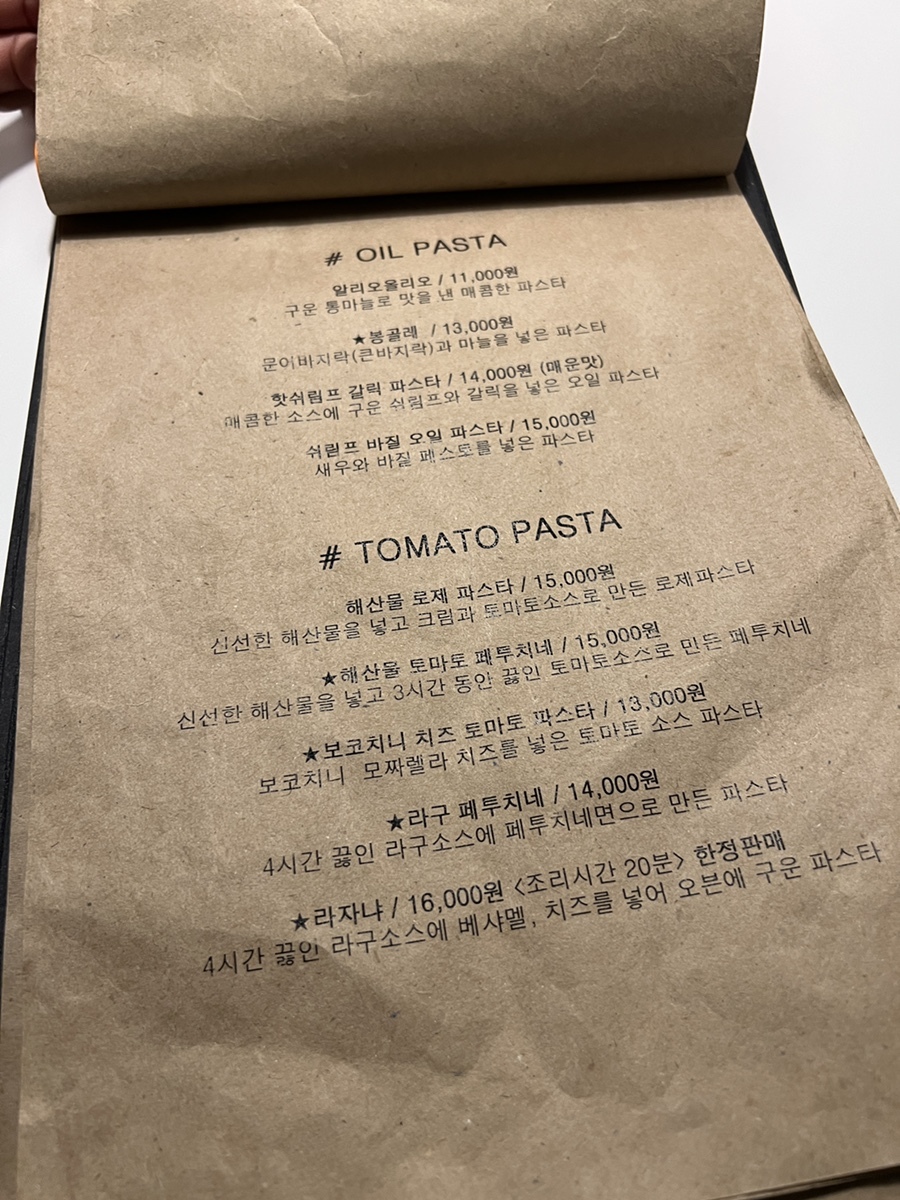 # OIL PASTA
알리오올리오 / 11,000원
구운 통마늘로 맛을 낸 매콤한 파스타
★봉골레 / 13,000원
문어바지락(큰바지락)과 마늘을 넣은 파스타
핫쉬림프 갈릭 파스타 / 14,000원 (매운맛)
매콤한 소스에 구운 쉬림프와 갈릭을 넣은 오일 파스타
쉬림프 바질 오일 파스타 / 15,000원
새우와 바질 페스토를 넣은 파스타
# TOMATO PASTA
해산물 로제 파스타 / 15,000원
신선한 해산물을 넣고 크림과 토마토소스로 만든 로제파스타
★해산물 토마토 페투치네 / 15,000원
신선한 해산물을 넣고 3시간 동안 끓인 토마토소스로 만든 페투치네
★보코치니 치즈 토마토 파스타 / 13,000원
보코치니 모짜렐라 치즈를 넣은 토마토 소스 파스타
★라구 페투치네 / 14,000원
4시간 끓인 라구소스에 페투치네면으로 만든 파스타
★라자냐 / 16,000원 <조리시간 20분> 한정판매
4시간 끓인 라구소스에 베샤멜, 치즈를 넣어 오븐에 구운 파스타